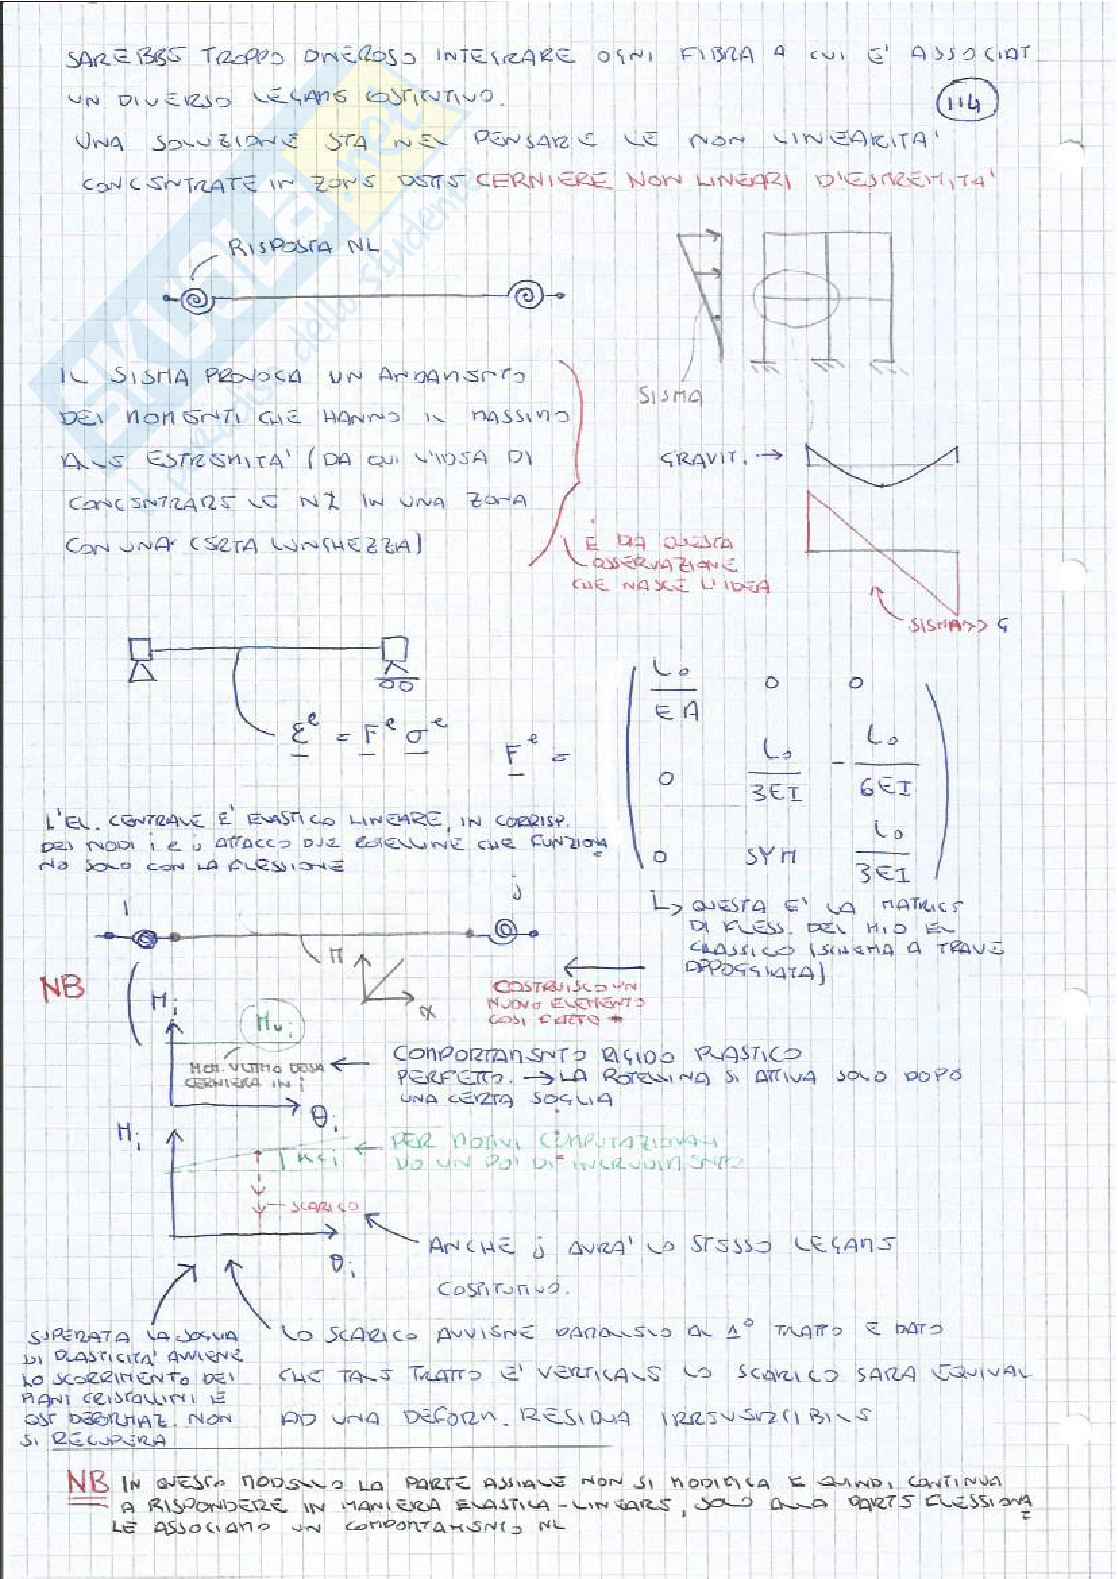 SAREBBE TROPPO ONEROSO INTEGRARE OGNI FIBRA A CUI E' ASSOCIAT
UN DIVERSO LEGAME COSTITUTIVO.
114
UNA SOLUZIONE STA NEL PENSARE LE NON LINEARITA'
CONCENTRATE IN ZONE DETTE CERNIERE NON LINEARI D'ESTREMITA'
RISPOSTA NL
SISMA
IL SISMA PROVOCA UN ANDAMENTO
DEI MOMENTI CHE HANNO IL MASSIMO
ALLE ESTREMITA' (DA QUI L'IDEA DI
CONCENTRARE LE NL IN UNA ZONA
CON UNA CERTA LUNGHEZZA)
GRAVIT. →
È DA QUESTA
OSSERVAZIONE
CHE NASCE L'IDEA
SISMA>> G
ε^e = F^e σ^e
F^e =
L0/EA 0 0
0 L0/3EI -L0/6EI
0 SYM L0/3EI
L'EL. CENTRALE E' ELASTICO LINEARE, IN CORRISP.
DEI NODI i E j ATTACCO DUE ROTELLINE CHE FUNZIONA
NO SOLO CON LA FLESSIONE
↳ QUESTA E' LA MATRICE
DI FLESS. DEL MIO EL
CLASSICO (SCHEMA A TRAVE
APPOGGIATA)
i
j
M
χ
COSTRUISCO UN
NUOVO ELEMENTO
COSI FATTO *
NB
Mi
Mui
MOM. ULTIMO DELLA
CERNIERA IN i
θi
← COMPORTAMENTO RIGIDO PLASTICO
PERFETTO. → LA ROTELLINA SI ATTIVA SOLO DOPO
UNA CERTA SOGLIA
Mi
← PER MOTIVI COMPUTAZIONALI
DO UN POI DI INCRUDIMENTO
SCARICO
θi
ANCHE j AVRA' LO STESSO LEGAME
COSTITUTIVO.
SUPERATA LA SOGLIA
DI PLASTICITA' AVVIENE
LO SCORRIMENTO DEI
PIANI CRISTALLINI E
QST DEFORMAZ. NON
SI RECUPERA
LO SCARICO AVVIENE PARALLELO AL 1° TRATTO E DATO
CHE TALE TRATTO E' VERTICALE LO SCARICO SARA EQUIVAL
AD UNA DEFORM. RESIDUA IRREVERSIBILE
NB IN QUESTO MODELLO LA PARTE ASSIALE NON SI MODIFICA E QUINDI CONTINUA
A RISPONDERE IN MANIERA ELASTICA-LINEARE, SOLO ALLA PARTE FLESSIONA
LE ASSOCIAMO UN COMPORTAMENTO NL